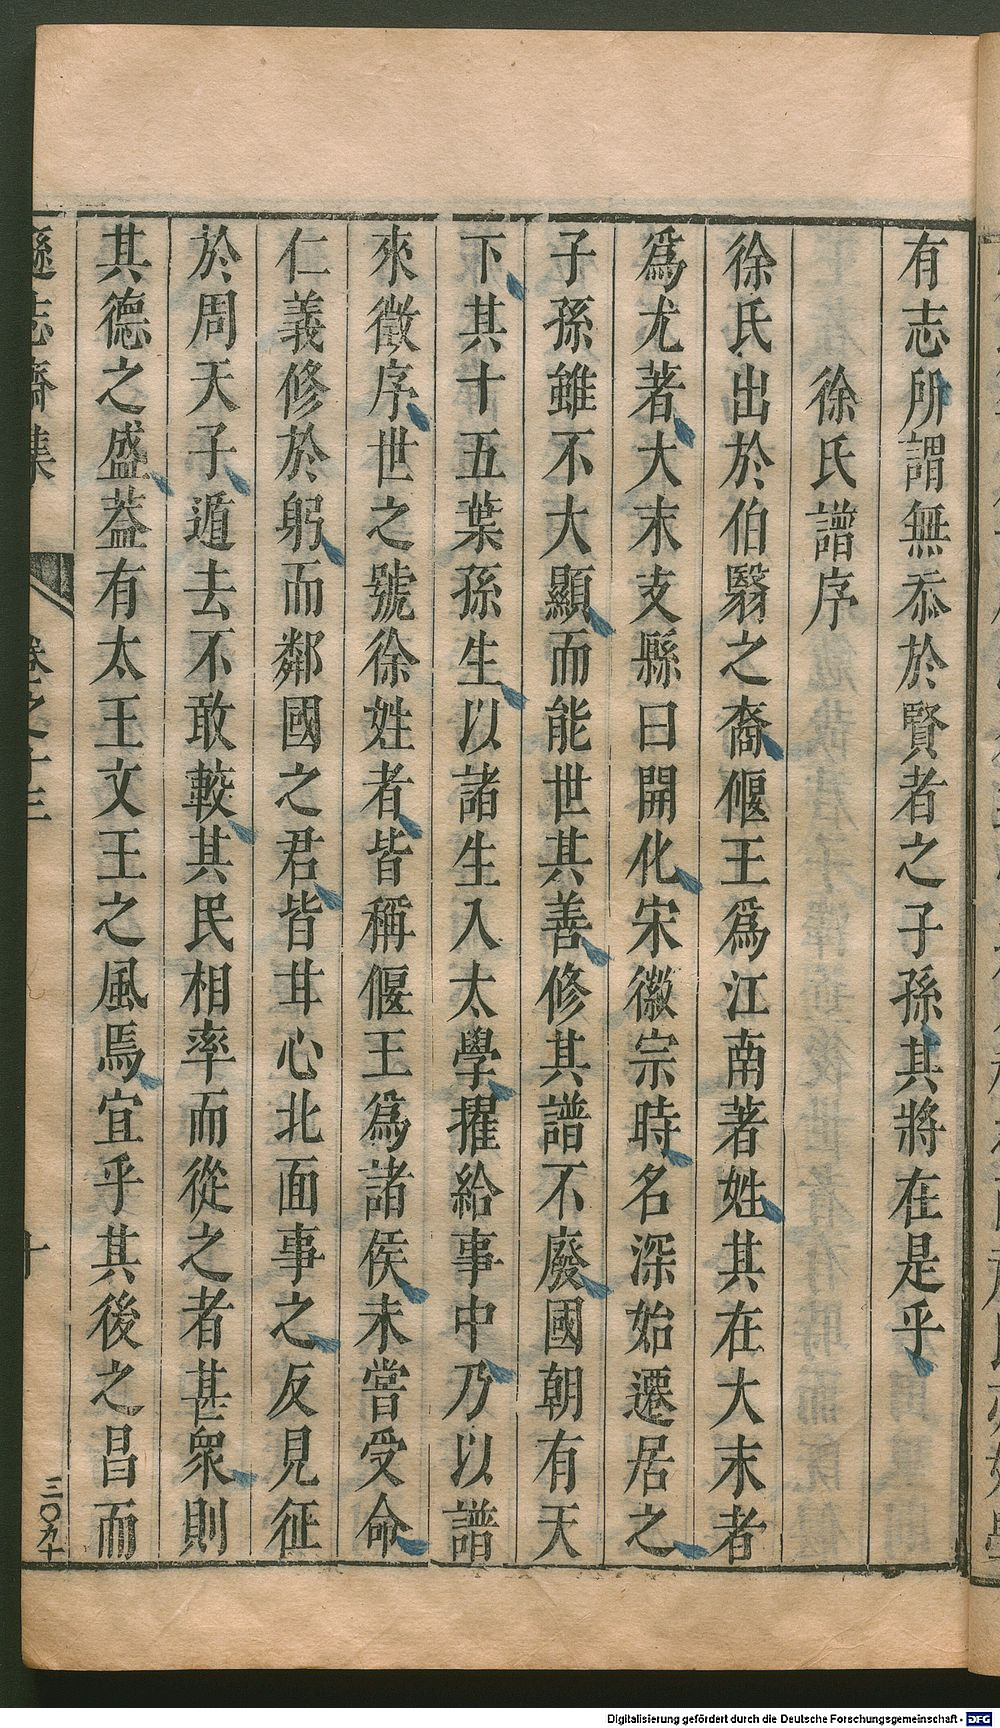 有志所謂無忝於賢者之子孫其將在是乎
徐氏譜序
徐氏出於伯翳之裔偃王爲江南著姓其在大末者
爲尤著大末支縣曰開化宋徽宗時名深始遷居之
子孫雖不大顯而能世其善修其譜不廢國朝有天
下其十五葉孫生以諸生入太學擢給事中乃以譜
來徵序世之號徐姓者皆稱偃王爲諸侯未嘗受命
仁義修於躬而鄰國之君皆甘心北面事之反見征
於周天子遁去不敢較其民相率而從之者甚衆則
其德之盛葢有太王文王之風焉宜乎其後之昌而
遜志齋集
卷之十三
十
三〇九十
Digitalisierung gefördert durch die Deutsche Forschungsgemeinschaft - DFG